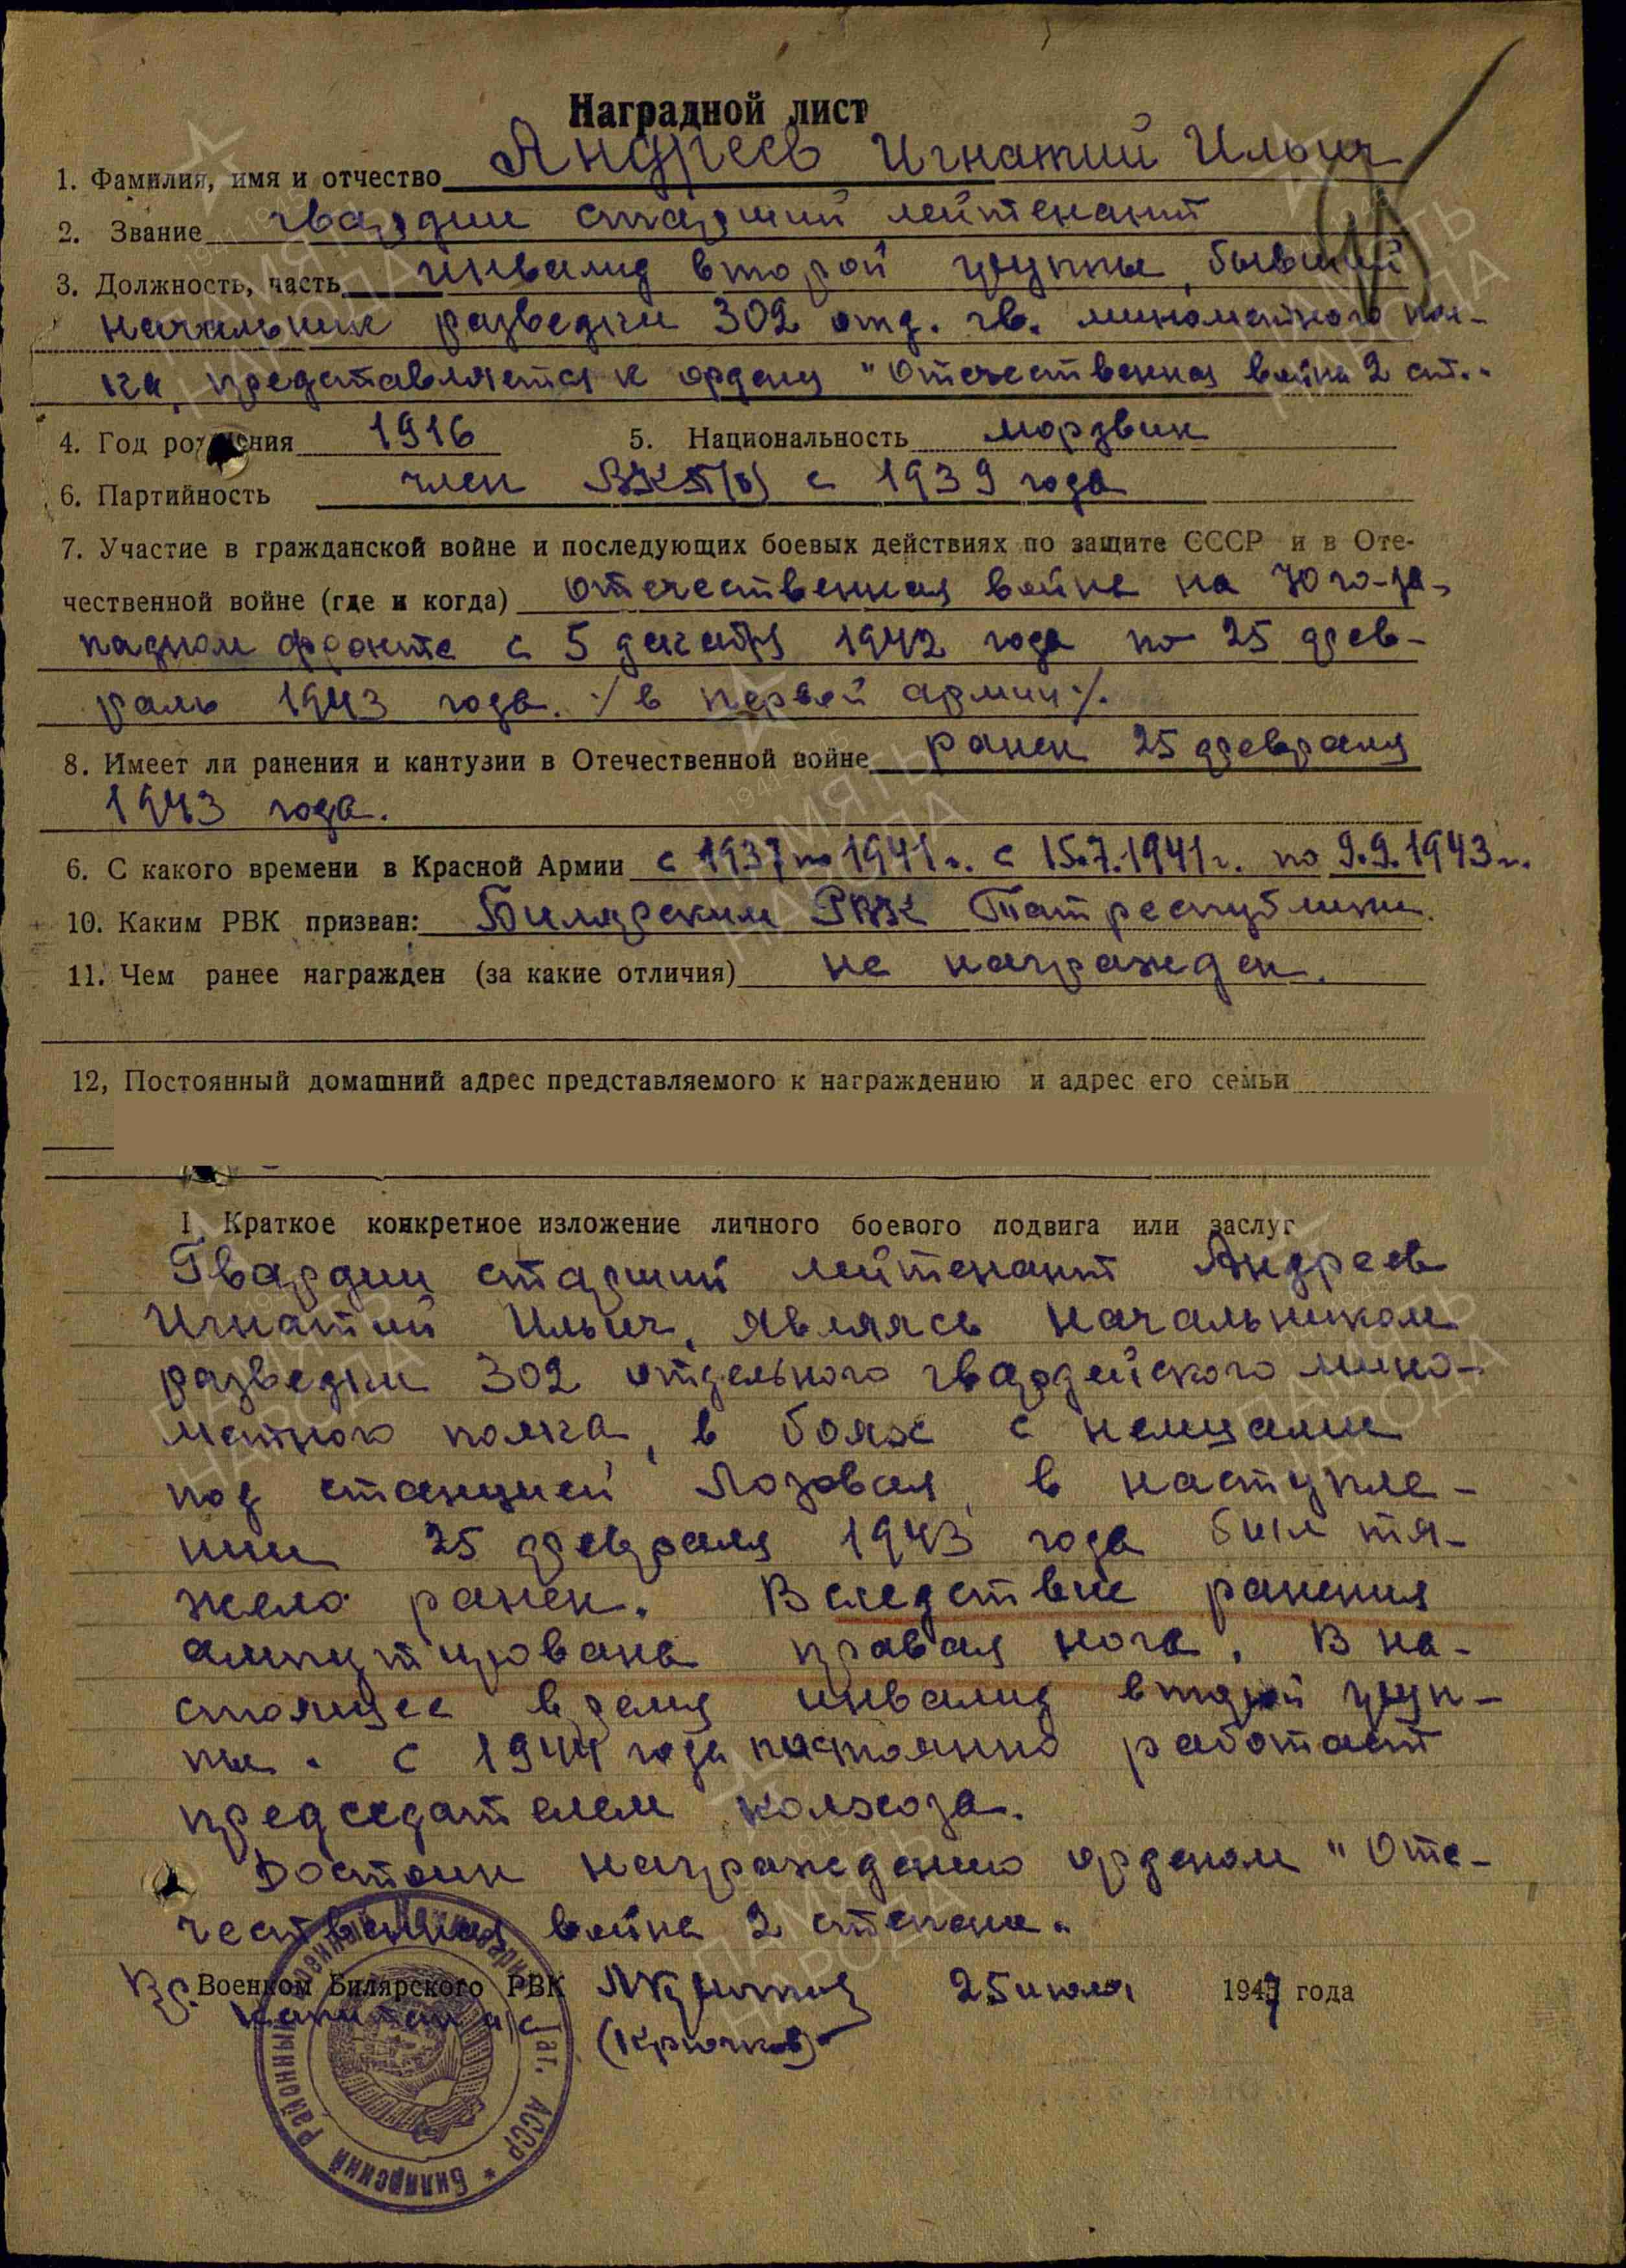 Наградной лист
1. Фамилия, имя и отчество Андреев Игнатий Ильич
2. Звание гвардии старший лейтенант
3. Должность, часть инвалид второй группы, бывший
начальник разведки 302 отд. гв. минометного пол-
ка, представляется к ордену "Отечественная война 2 ст."
4. Год рождения 1916 5. Национальность мордвин
6. Партийность член ВКП(б) с 1939 года
7. Участие в гражданской войне и последующих боевых действиях по защите СССР и в Оте-
чественной войне (где и когда) отечественная война на Юго-за-
падном фронте с 5 декабря 1942 года по 25 фев-
раль 1943 года. /в первой армии/.
8. Имеет ли ранения и кантузии в Отечественной войне ранен 25 февраля
1943 года.
6. С какого времени в Красной Армии с 1937 по 1941 г. с 15.7.1941 г. по 9.9.1943 г.
10. Каким РВК призван: Билярским РВК Татреспублики.
11. Чем ранее награжден (за какие отличия) не награжден.
12, Постоянный домашний адрес представляемого к награждению и адрес его семьи
I Краткое конкретное изложение личного боевого подвига или заслуг
Гвардии старший лейтенант Андреев
Игнатий Ильич, являясь начальником
разведки 302 отдельного гвардейского мино-
метного полка, в боях с немцами
под станцией Лозовая, в наступле-
нии 25 февраля 1943 года был тя-
жело ранен. Вследствие ранения
ампутирована правая нога. В на-
стоящее время инвалид второй груп-
пы. С 1944 года постоянно работает
председателем колхоза.
Достоин награждению орденом "Оте-
чественная война 2 степени".
Вр. Военком Билярского РВК 25 июля 1947 года
капитан а/с (Крючков)
Тат. АССР * Билярский районный
ПАМЯТЬ НАРОДА
1941-1945